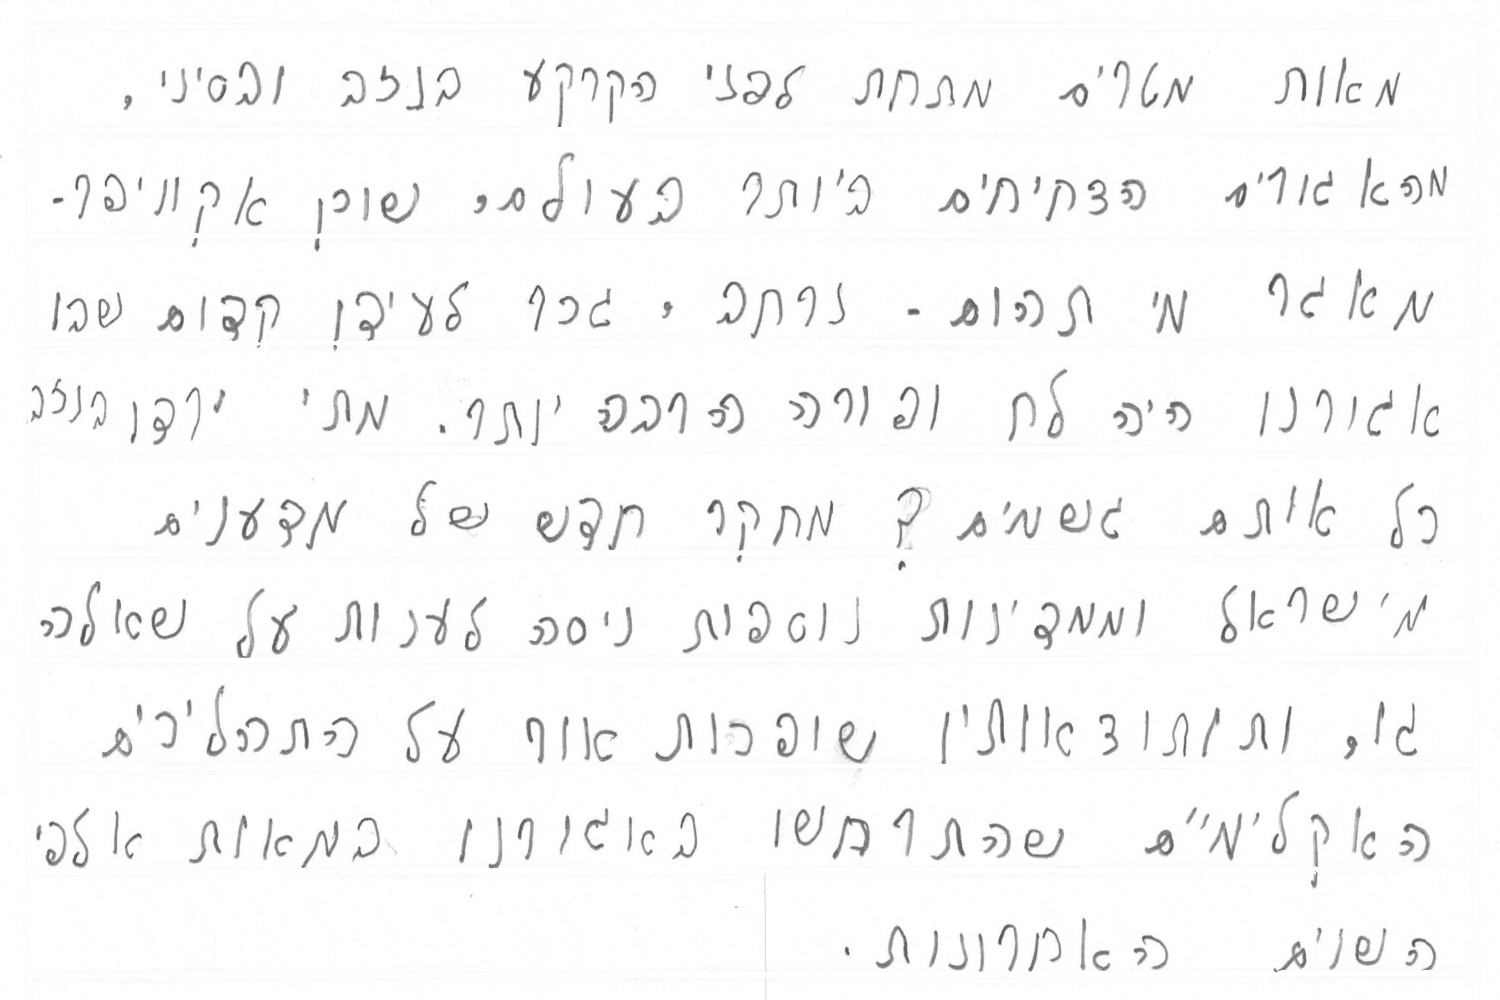 מאות מטרים מתחת לפני הקרקע בנגב ובסיני,
מהאזורים הצחיחים ביותר בעולם, שוכן אקוויפר-
מאגר מי תהום - נרחב, זכר לעידן קדום שבו
אזורנו היה לח ופורה הרבה יותר. מתי ירדו בנגב
כל אותם גשמים? מחקר חדש של מדענים
מישראל וממדינות נוספות ניסה לענות על שאלה
זו, ותוצאותיו שופכות אור על התהליכים
האקלימיים שהתרחשו באזורנו במאות אלפי
השנים האחרונות.